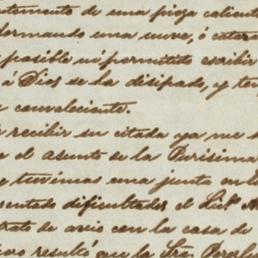 ntemento de una pieza caliente
formando una nueva, ó catar
posible nó permitido escribir
á Dios se ha disipado, y ten
convaleciente.
recibir su citada ya me h
a el asunto de la Purísima
y tuvimos una junta en l
sentado dificultades el Lic.
trato de avio con la casa de
resultó que la Sra.